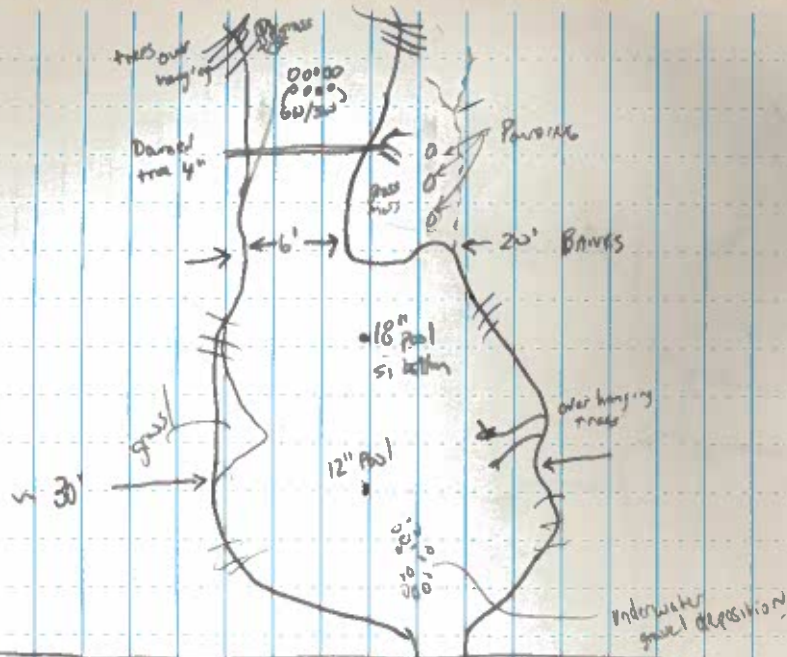 trees over
hanging
GW/SW
Downed
tree 4"
PONDING
6'
20' BANKS
18" pool
si bottom
grass
over hanging
trees
12" Pool
~ 30'
underwater
gravel deposition